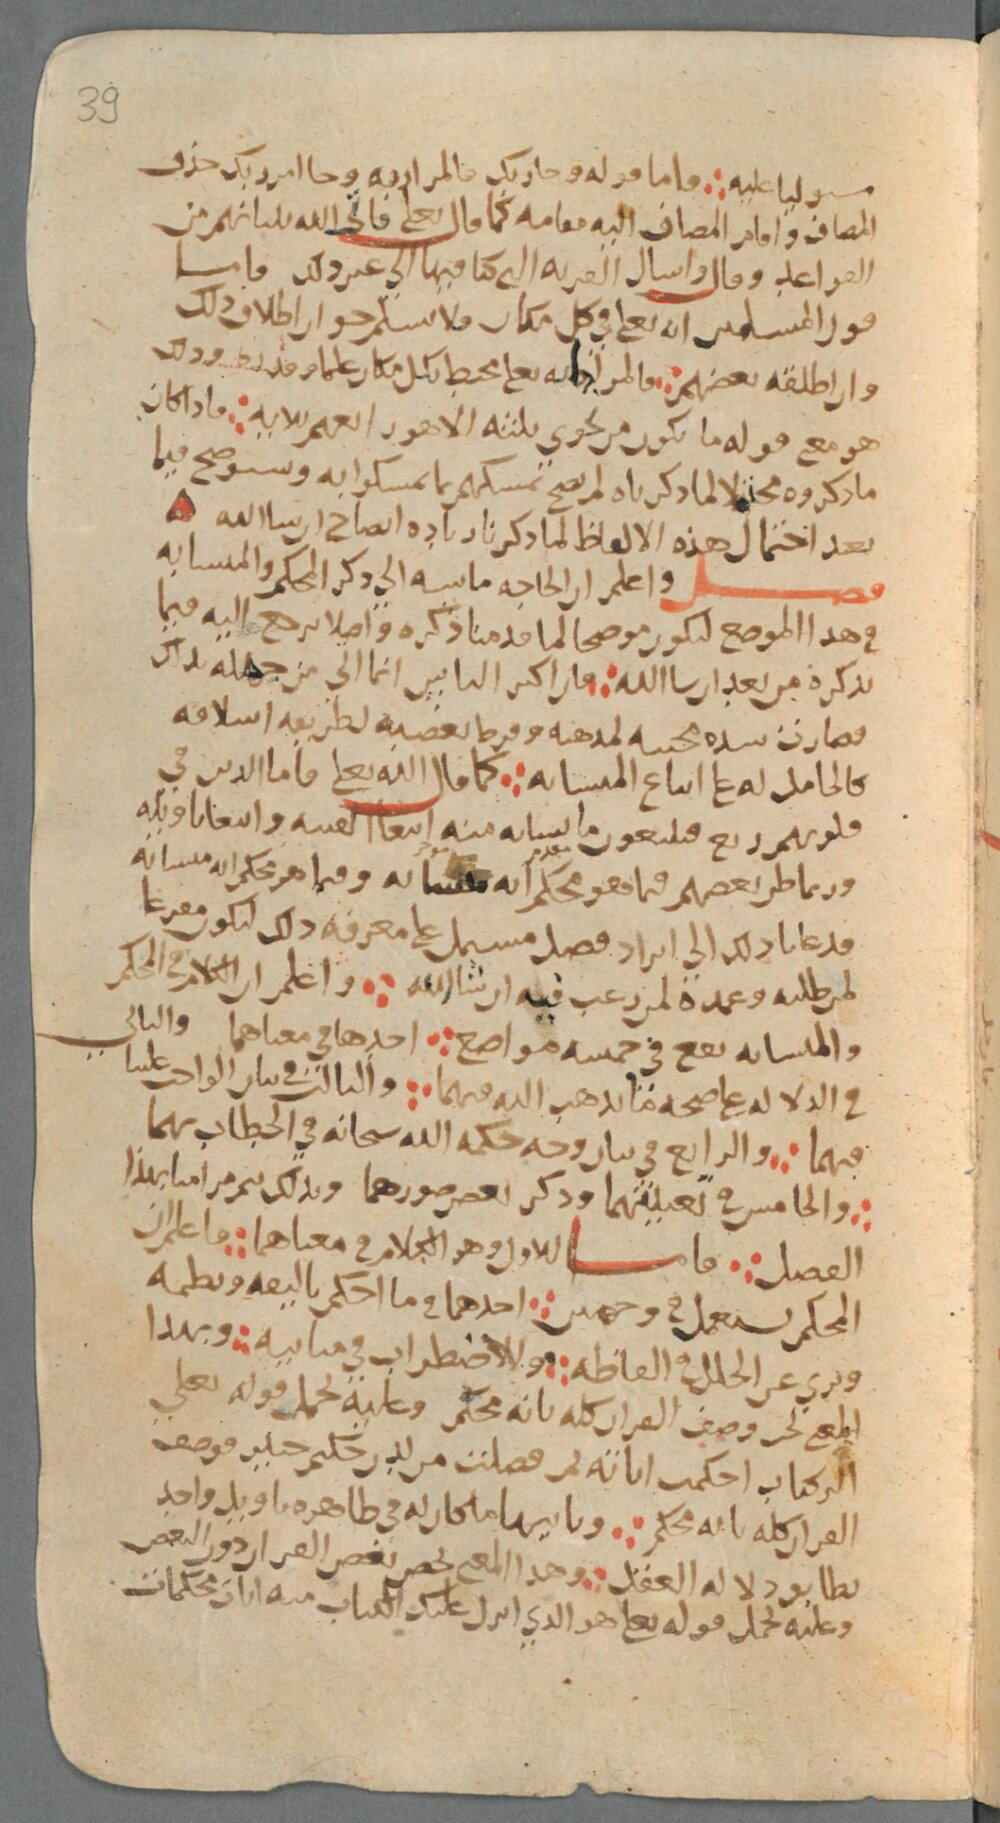 39
مستوليا عليه ⁘ فاما قوله وجا ربك فالمراد به وجا امر ربك حذف
المضاف واقام المضاف اليه مقامه كما قال تعلى فاتى الله بنيانهم من
القواعد وقال واسال القريه التى كنا فيها الى غير ذلك فاما
قول المسلمين انه تعلى في كل مكان فلا نسلم جواز اطلاق ذلك
وان اطلقه بعضهم ⁘ فالمراد انه تعلى محيط بكل مكان علما وذلك
هو معنى قوله ما يكون من نجوى ثلثه الا هو رابعهم الايه ⁘ فاذا كان
ما ذكروه محتملا لما ذكرناه لم يصح تمسكهم بما تمسكوا به وسنوضح فيما
بعد احتمال هذه الالفاظ لما ذكرنا زياده ايضاح ان شا الله ه
فصل واعلم ان الحاجه ماسه الى ذكر المحكم والمتشابه
في هذا الموضع ليكون موضحا لما قدمنا ذكره واصلا يرجع اليه فيما
نذكره من بعد ان شا الله ⁘ فان اكثر الناس انما اتى من جهله بذلك
فصارت شده محبته لمذهبه وفرط تعصبه لطريقه اسلافه
كالحامل له على اتباع المتشابه ⁘ كما قال الله تعلى فاما الذين في
قلوبهم زيغ فيتبعون ما تشابه منه ابتغا الفتنه وابتغا تاويله
وربما ظن بعضهم فيما هو محكم انه متشابه وفيما هو محكم انه متشابه
مقدم موخر
فدعانا ذلك الى ايراد فصل مشتمل على معرفه ذلك ليكون مفزعا
لمن طلبه وعمدة لمن رغب فيه ان شا الله ⁘ واعلم ان الكلام في المحكم
والمتشابه يقع في خمسه مواضع ⁘ احدها في معناهما والثاني
في الدلاله على صحه ما نذهب اليه فيهما ⁘ والثالث في بيان الواجب علينا
فيهما ⁘ والرابع في بيان وجه حكمه الله سبحانه في الخطاب بهما
⁘ والخامس في تعيينهما وذكر بعض صورهما وبذلك يتم مرامنا بهذا
الفصل ⁘ فاما الاول وهو الكلام في معناهما ⁘ فاعلم ان
المحكم يستعمل في وجهين ⁘ احدهما في ما احكم تاليفه ونظمه
وبري عن الخلل في الفاظه ⁘ والاضطراب في مبانيه ⁘ وبهذا
المعنى نحن وصف القران كله بانه محكم وعليه يحمل قوله تعلى
الر كتاب احكمت اياته ثم فصلت من لدن حكيم خبير فوصف
القران كله بانه محكم ⁘ وثانيهما ما كان له في ظاهره تاويل واحد
يطابق دلاله العقل ⁘ وهذا المعنى يخص بعض القران دون البعض
وعليه يحمل قوله تعلى هو الذي انزل عليك الكتاب منه ايات محكمات